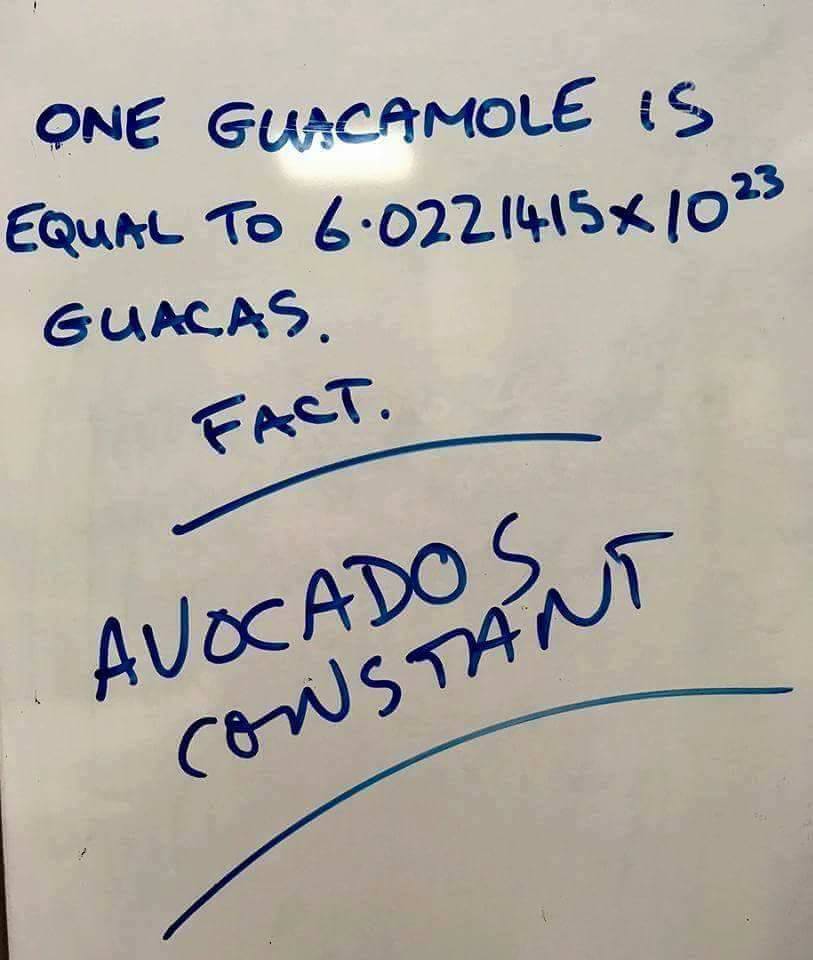 ONE GUACAMOLE IS
EQUAL TO 6.0221415×10²³
GUACAS.
FACT.
AVOCADOS
CONSTANT